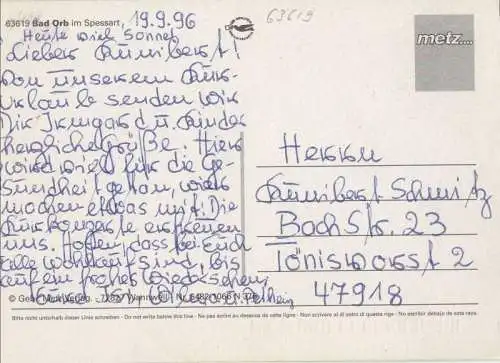 63619 Bad Orb im Spessart, 19.9.96
63619
Heute viel Sonne!
metz....
Lieber Kunibert!
Von unserem Kur-
urlaub senden wir
Dir Irmgard u. Kinder
herzliche Grüße. Hier
wird viel für die Ge-
sundheit getan, wir
machen etwas mit. Die
Kurkonzerte erfreuen
uns. Hoffen, dass bei Euch
alle wohlauf sind, bis
auf ein frohes Wiedersehen
Herrn
Kunibert Schmitz
Bachstr. 23
Tönisvorst 2
47918
© Gebr. Metz Verlag 72827 Wannweil
Bitte nicht unterhalb dieser Linie schreiben - Do not write below this line - Ne pas écrire au dessous de cette ligne - Non scrivere al di sotto di questa riga - No escribir debajo de esta raya.